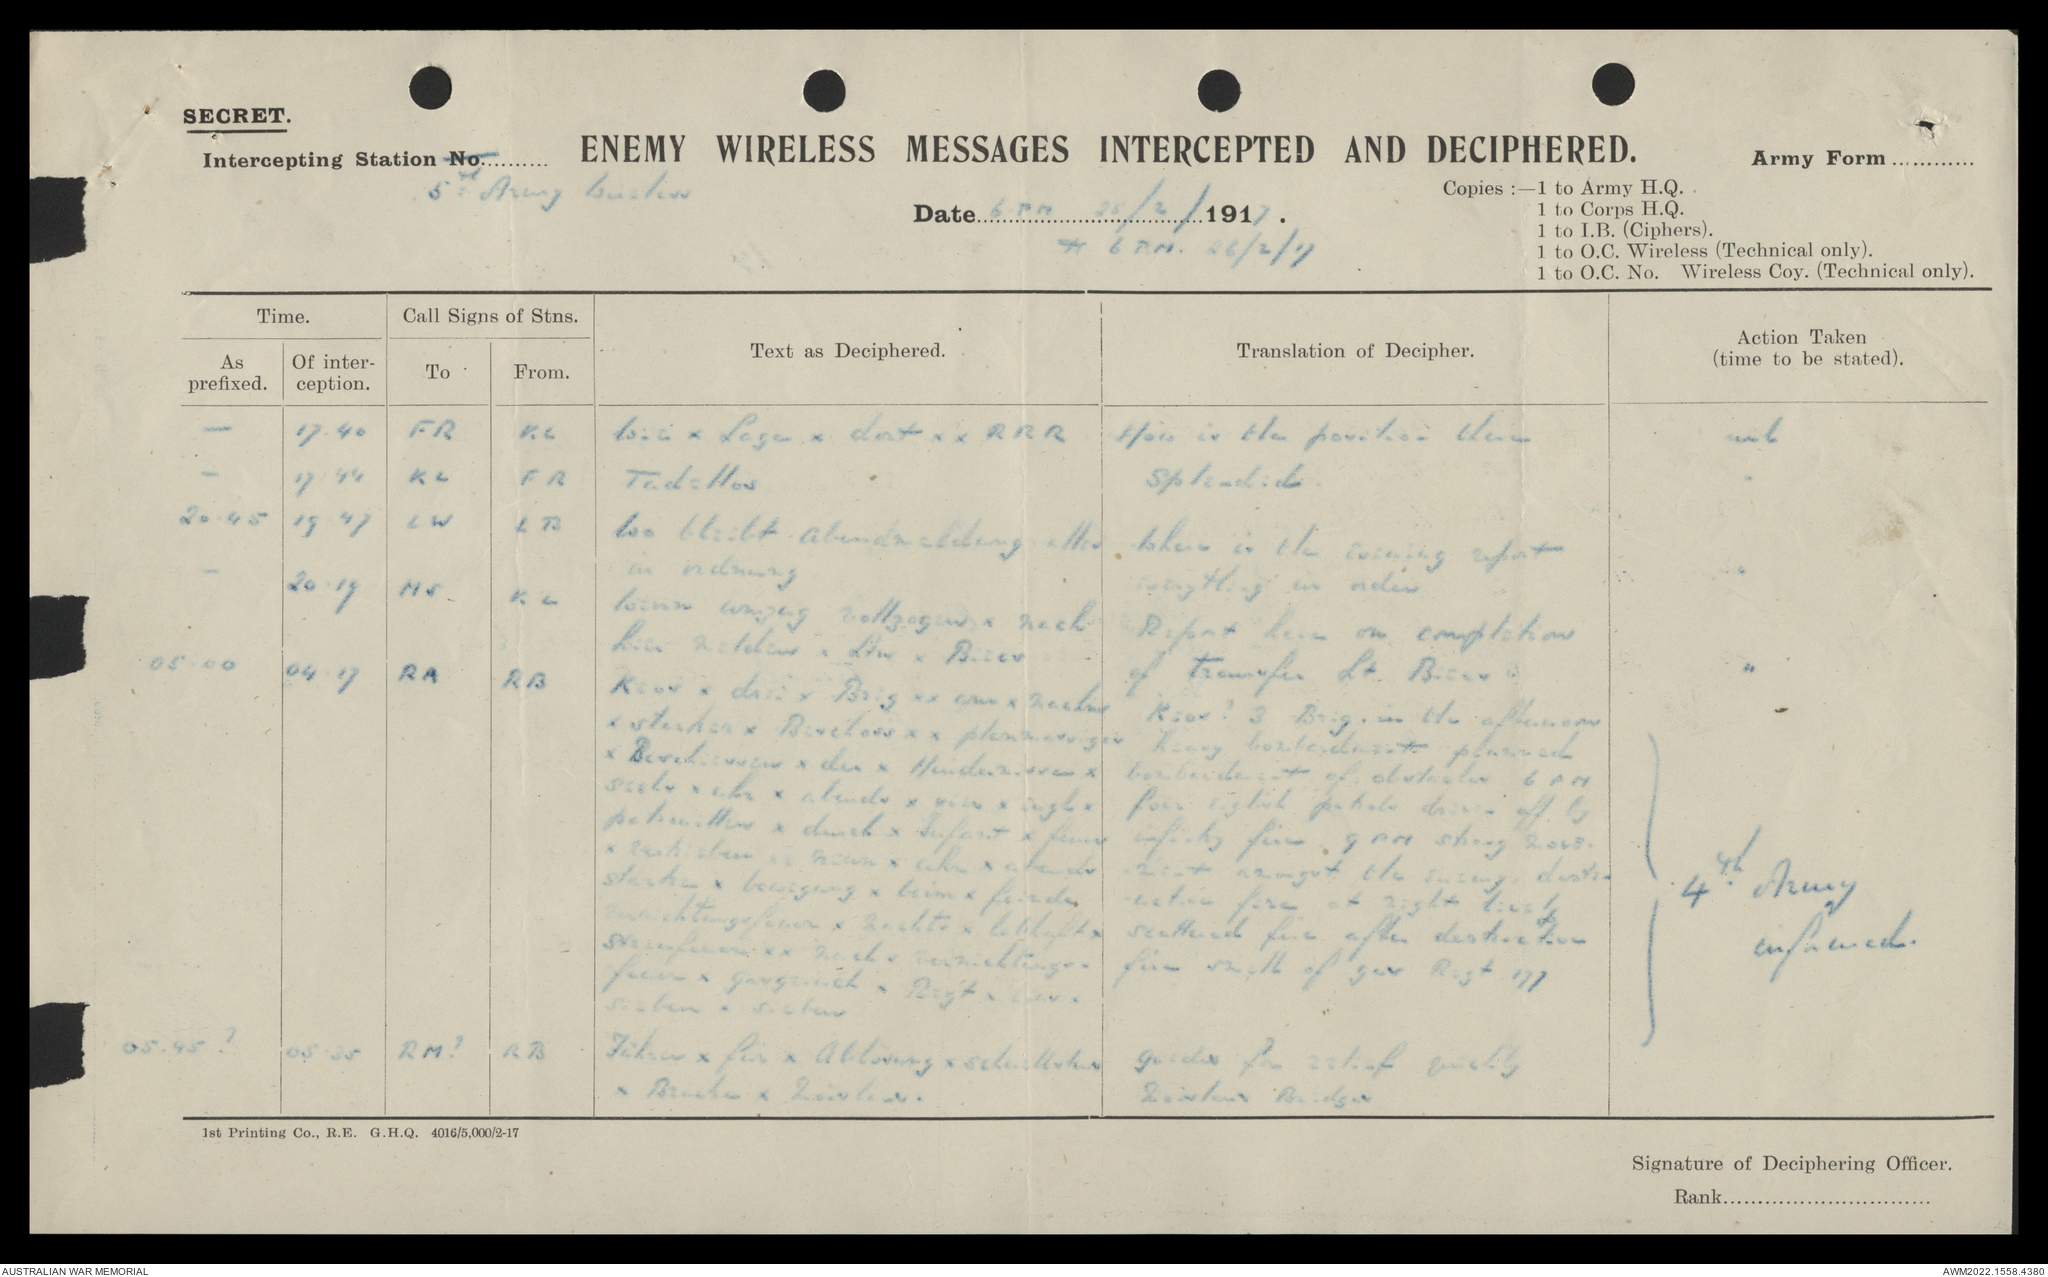 SECRET.
Intercepting Station No..........
5th Army Wireless
ENEMY WIRELESS MESSAGES INTERCEPTED AND DECIPHERED.
Army Form ............
Copies :—1 to Army H.Q.
1 to Corps H.Q.
1 to I.B. (Ciphers).
1 to O.C. Wireless (Technical only).
1 to O.C. No. Wireless Coy. (Technical only).
Date 6 PM 25/2/1917.
6 P.M. 26/2/17
Time.
Call Signs of Stns.
As prefixed.
Of inter-ception.
To
From.
Text as Deciphered.
Translation of Decipher.
Action Taken
(time to be stated).
— 17.40 FR KL Wie x Lage x dort x x RRR How is the position there
— 17.44 KL FR Tadellos Splendid. "
20.45 19.47 LW LB Wo bleibt abendmeldung alles Where is the evening report
in ordnung everything in order "
— 20.19 MS KL Wenn umzug vollzogen x nach Report here on completion
hier melden x Ltn x Bier of transfer Lt. "
05.00 04.17 RA RB x drei x Brig xx am x nachm 3 Brig. in the afternoon
x starker x Beschoss x x planmassiges heavy bombardment planned
x Beschiessen x der x Hindernissen x bombardment of obstacles 6 PM
sechs x uhr x abends x vier x engl x four english patrols driven off by
patrouillen x durch x Infant x feuer infantry fire. 9 PM strong move-
x vertrieben x neun x uhr x abends ment amongst the enemy. destr-
starke x bewegung x beim x feinde uction fire at night lively
vernichtungsfeuer x nachts x lebhaft x scattered fire after destruction
streufeuer xx nach x vernichtungs- fire smell of gas Regt 177
feuer x gasgeruch x Regt x x
sieben x sieben
4th Army
informed.
05.45 ? 05.35 RM? RB Führer x für x Ablösung x guides for relief quickly
x x Bridge
1st Printing Co., R.E. G.H.Q. 4016/5,000/2-17
Signature of Deciphering Officer.
Rank..............................
AUSTRALIAN WAR MEMORIAL
AWM2022.1558.4380